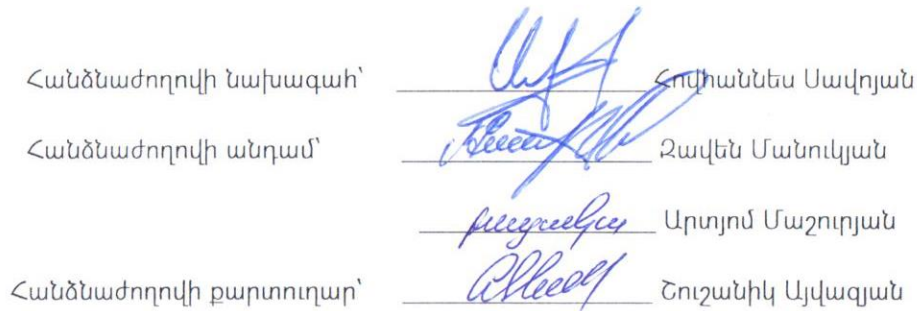 Հանձնաժողովի նախագահ՝ Հովհաննես Սավոյան
Հանձնաժողովի անդամ՝ Զավեն Մանուկյան
բացակա Արտյոմ Մաշուրյան
Հանձնաժողովի քարտուղար՝ Շուշանիկ Այվազյան